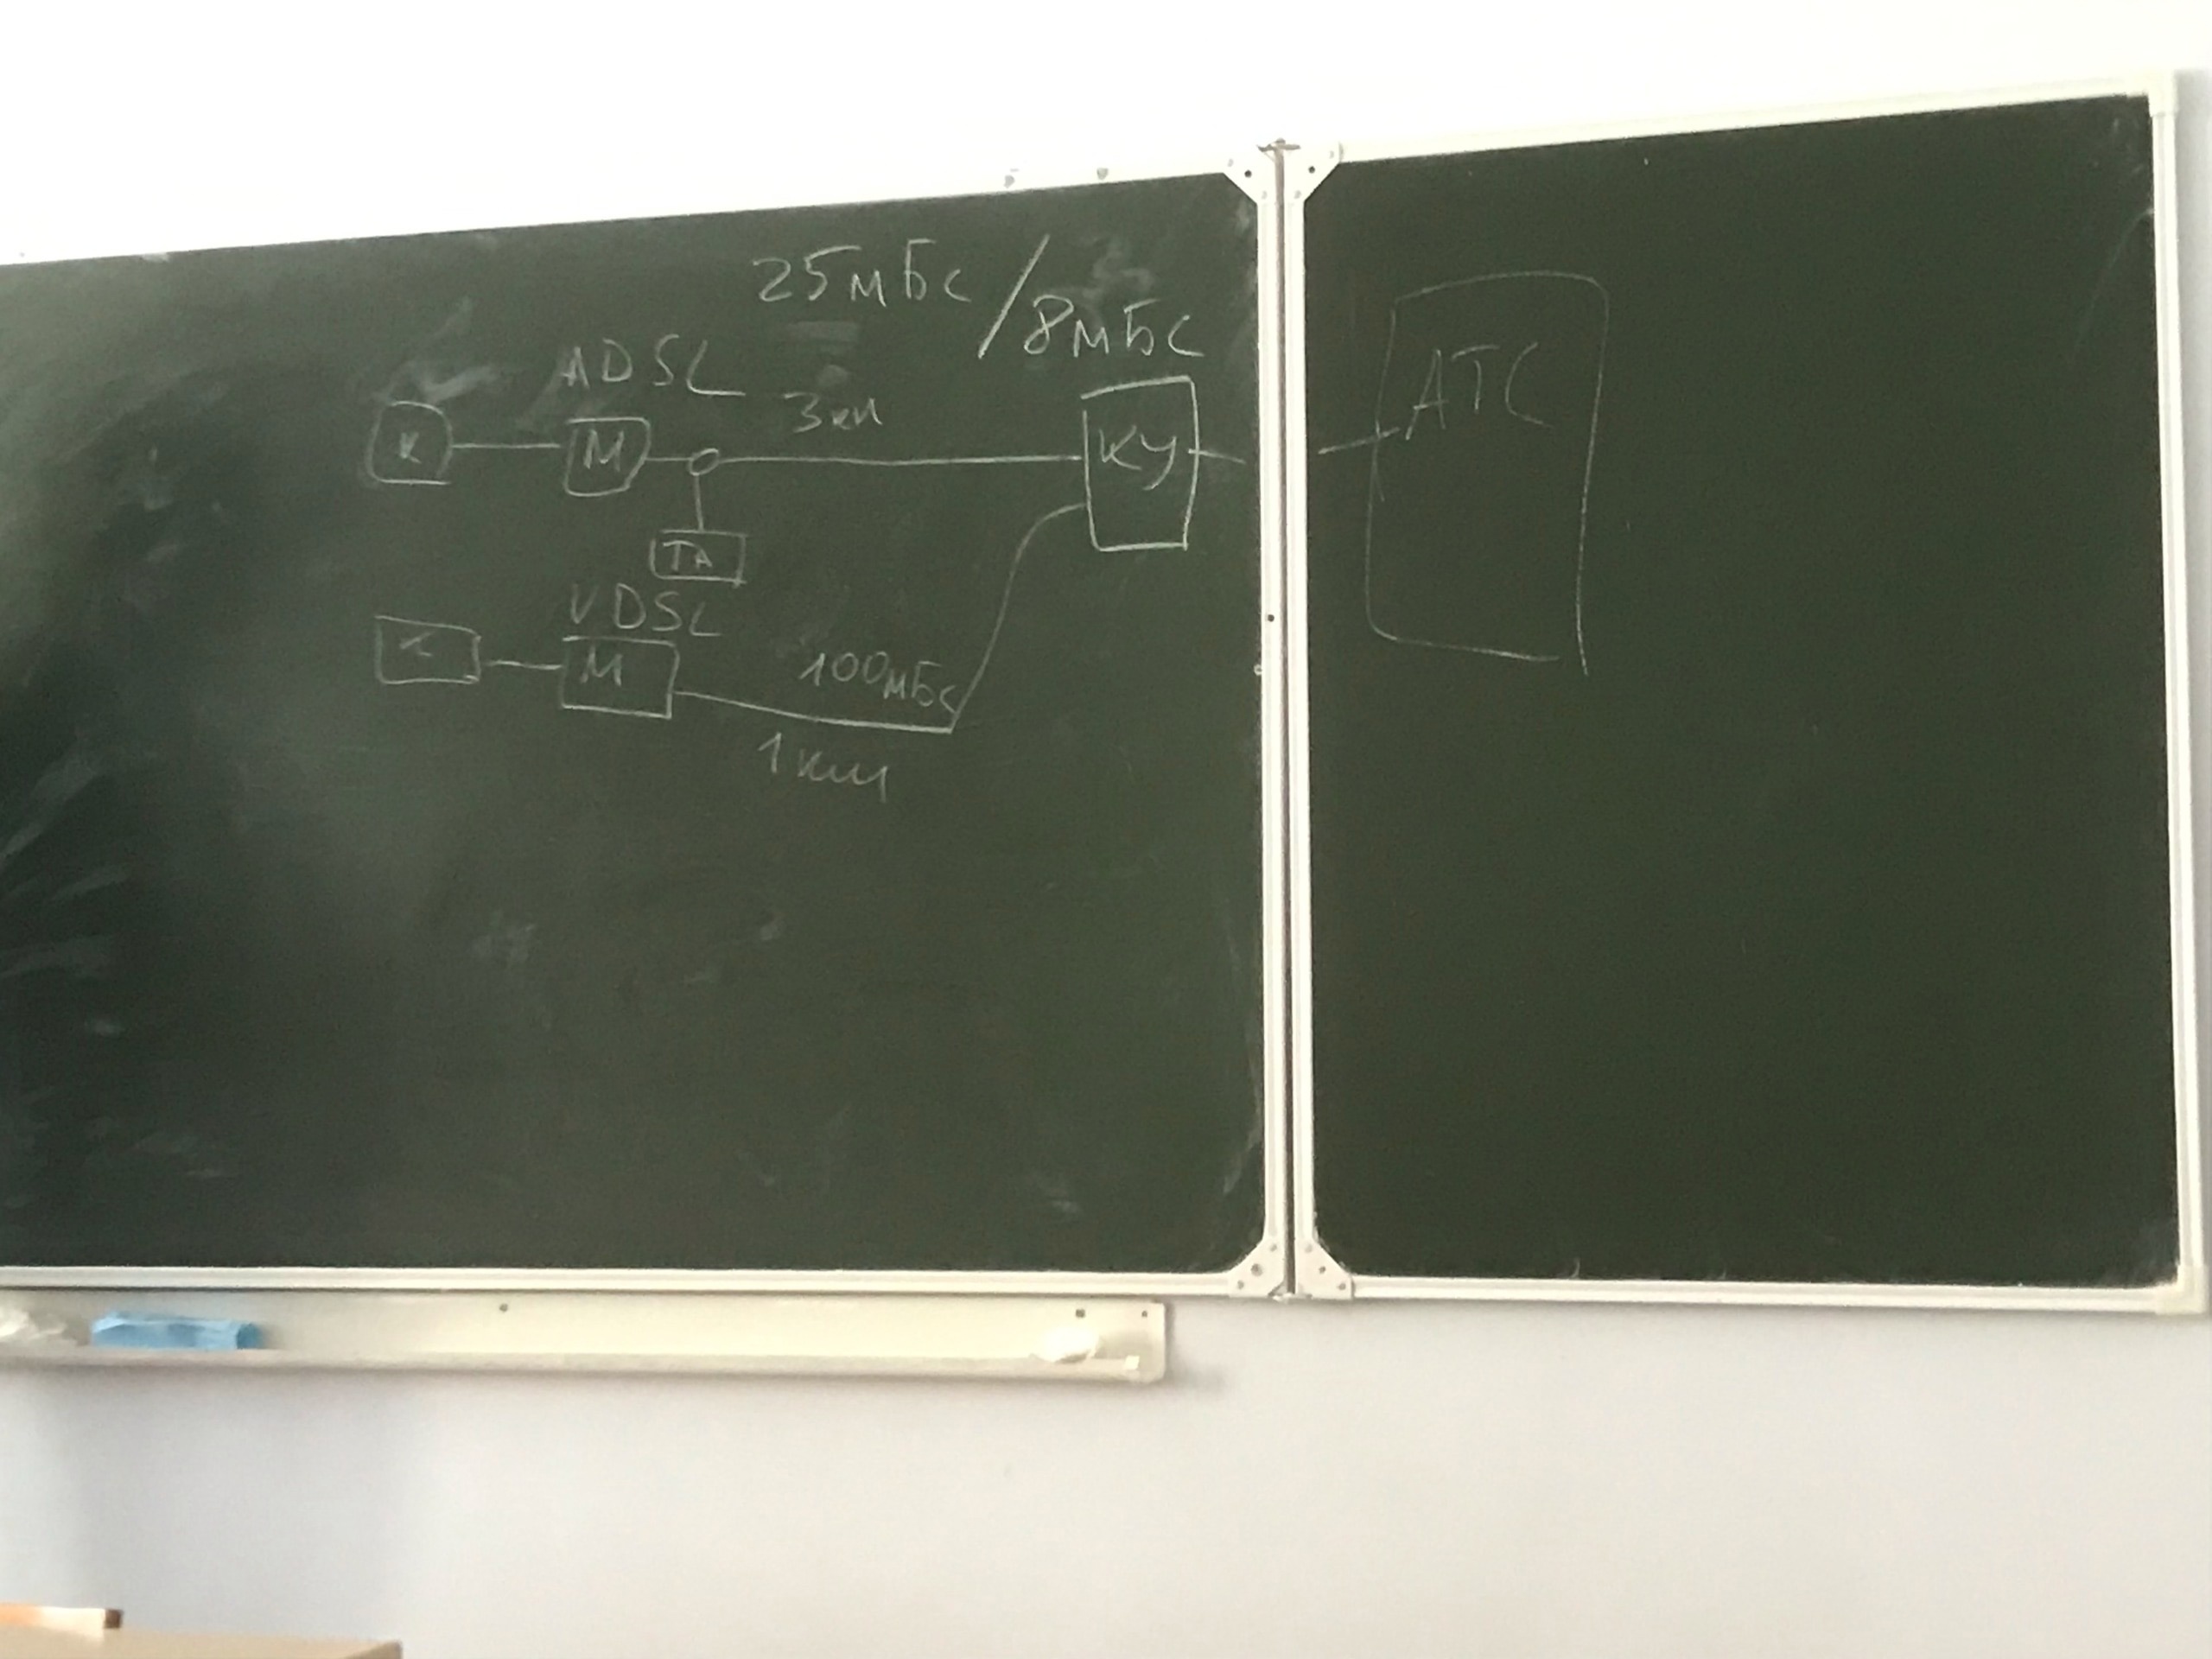 25мБс / 8мБс
ADSL
3км
К
М
КУ
АТС
ТА
VDSL
К
М
100мБс
1км